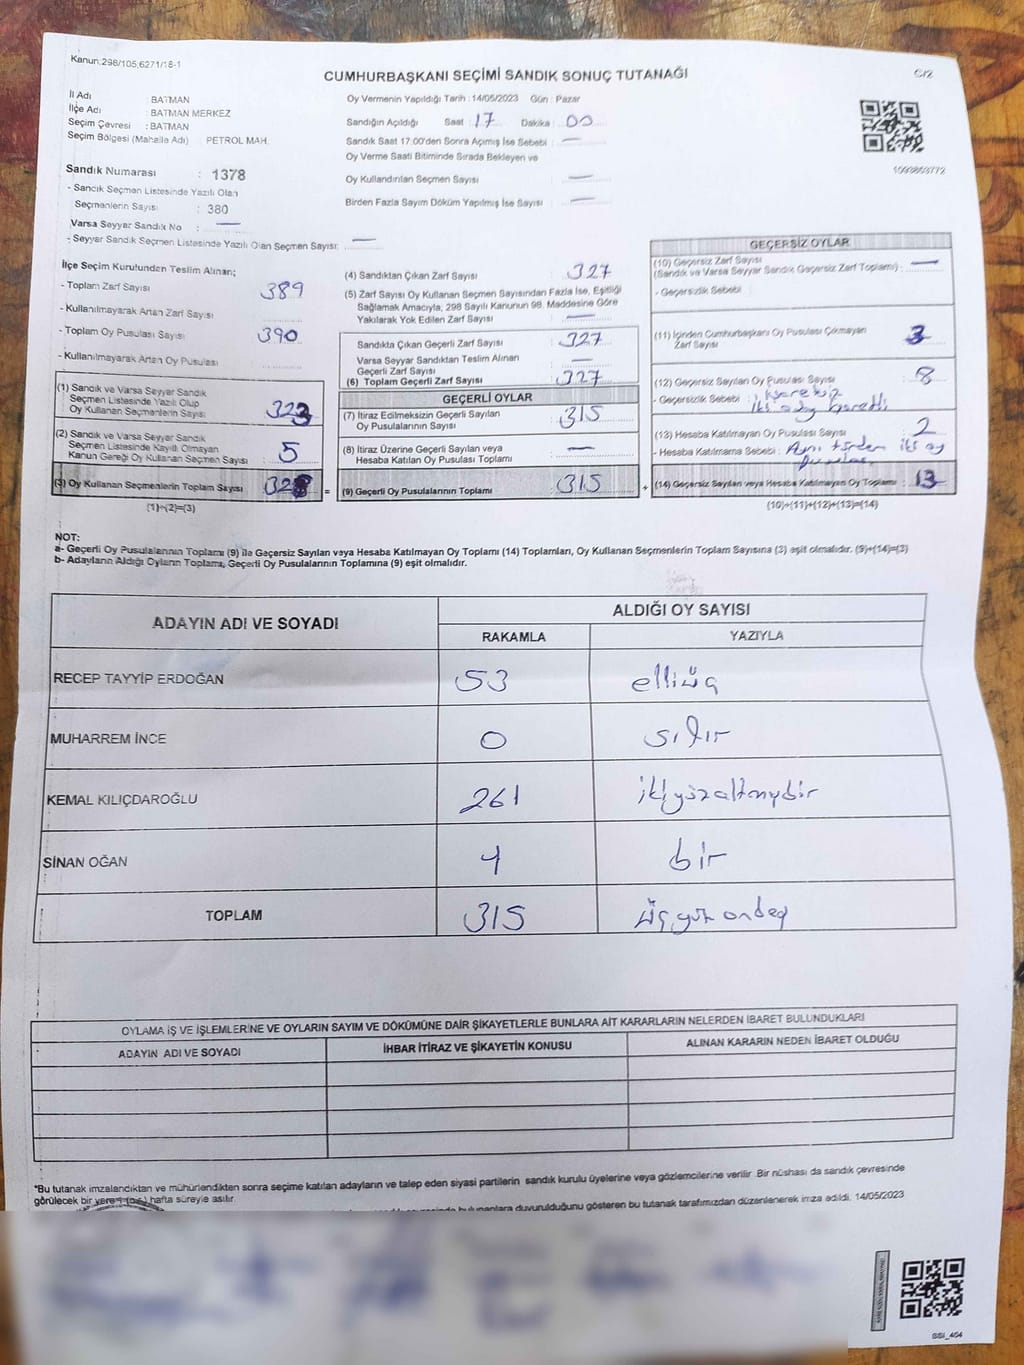 Kanun:298/105,6271/18-1
C/2
CUMHURBAŞKANI SEÇİMİ SANDIK SONUÇ TUTANAĞI
İl Adı : BATMAN
İlçe Adı : BATMAN MERKEZ
Seçim Çevresi : BATMAN
Seçim Bölgesi (Mahalle Adı) PETROL MAH.
Sandık Numarası : 1378
- Sandık Seçmen Listesinde Yazılı Olan
Seçmenlerin Sayısı : 380
Varsa Seyyar Sandık No : —
- Seyyar Sandık Seçmen Listesinde Yazılı Olan Seçmen Sayısı: —
Oy Vermenin Yapıldığı Tarih : 14/05/2023 Gün : Pazar
Sandığın Açıldığı Saat : 17 Dakika : 00
Sandık Saat 17.00'den Sonra Açılmış İse Sebebi : —
Oy Verme Saati Bitiminde Sırada Bekleyen ve
Oy Kullandırılan Seçmen Sayısı : —
Birden Fazla Sayım Döküm Yapılmış İse Sayısı : —
1093853772
İlçe Seçim Kurulundan Teslim Alınan;
- Toplam Zarf Sayısı : 389
- Kullanılmayarak Artan Zarf Sayısı :
- Toplam Oy Pusulası Sayısı : 390
- Kullanılmayarak Artan Oy Pusulası :
(1) Sandık ve Varsa Seyyar Sandık
Seçmen Listesinde Yazılı Olup
Oy Kullanan Seçmenlerin Sayısı : 323
(2) Sandık ve Varsa Seyyar Sandık
Seçmen Listesinde Kayıtlı Olmayan
Kanun Gereği Oy Kullanan Seçmen Sayısı : 5
(3) Oy Kullanan Seçmenlerin Toplam Sayısı : 328
(1)+(2)=(3)
(4) Sandıktan Çıkan Zarf Sayısı : 327
(5) Zarf Sayısı Oy Kullanan Seçmen Sayısından Fazla İse, Eşitliği
Sağlamak Amacıyla, 298 Sayılı Kanunun 98. Maddesine Göre
Yakılarak Yok Edilen Zarf Sayısı : —
Sandıkta Çıkan Geçerli Zarf Sayısı : 327
Varsa Seyyar Sandıktan Teslim Alınan
Geçerli Zarf Sayısı : —
(6) Toplam Geçerli Zarf Sayısı : 327
GEÇERLİ OYLAR
(7) İtiraz Edilmeksizin Geçerli Sayılan
Oy Pusulalarının Sayısı : 315
(8) İtiraz Üzerine Geçerli Sayılan veya
Hesaba Katılan Oy Pusulası Toplamı : —
= (9) Geçerli Oy Pusulalarının Toplamı : 315 +
GEÇERSİZ OYLAR
(10) Geçersiz Zarf Sayısı
(Sandık ve Varsa Seyyar Sandık Geçersiz Zarf Toplamı) : —
- Geçersizlik Sebebi :
(11) İçinden Cumhurbaşkanı Oy Pusulası Çıkmayan
Zarf Sayısı : 3
(12) Geçersiz Sayılan Oy Pusulası Sayısı : 8
- Geçersizlik Sebebi : işaretsiz
iki aday işaretli
(13) Hesaba Katılmayan Oy Pusulası Sayısı : 2
- Hesaba Katılmama Sebebi : Aynı türden iki oy
pusulası
(14) Geçersiz Sayılan veya Hesaba Katılmayan Oy Toplamı : 13
(10)+(11)+(12)+(13)=(14)
NOT:
a- Geçerli Oy Pusulalarının Toplamı (9) ile Geçersiz Sayılan veya Hesaba Katılmayan Oy Toplamı (14) Toplamları, Oy Kullanan Seçmenlerin Toplam Sayısına (3) eşit olmalıdır. (9)+(14)=(3)
b- Adayların Aldığı Oyların Toplamı, Geçerli Oy Pusulalarının Toplamına (9) eşit olmalıdır.
ADAYIN ADI VE SOYADI ALDIĞI OY SAYISI
RAKAMLA YAZIYLA
RECEP TAYYİP ERDOĞAN 53 elliüç
MUHARREM İNCE 0 sıfır
KEMAL KILIÇDAROĞLU 261 ikiyüzaltmışbir
SİNAN OĞAN 1 bir
TOPLAM 315 üçyüzonbeş
OYLAMA İŞ VE İŞLEMLERİNE VE OYLARIN SAYIM VE DÖKÜMÜNE DAİR ŞİKAYETLERLE BUNLARA AİT KARARLARIN NELERDEN İBARET BULUNDUKLARI
ADAYIN ADI VE SOYADI İHBAR İTİRAZ VE ŞİKAYETİN KONUSU ALINAN KARARIN NEDEN İBARET OLDUĞU
*Bu tutanak imzalandıktan ve mühürlendikten sonra seçime katılan adayların ve talep eden siyasi partilerin sandık kurulu üyelerine veya gözlemcilerine verilir. Bir nüshası da sandık çevresinde
görülecek bir yere 1 (bir) hafta süreyle asılır.
bulunanlara duyurulduğunu gösteren bu tutanak tarafımızdan düzenlenerek imza edildi. 14/05/2023
SSI_404